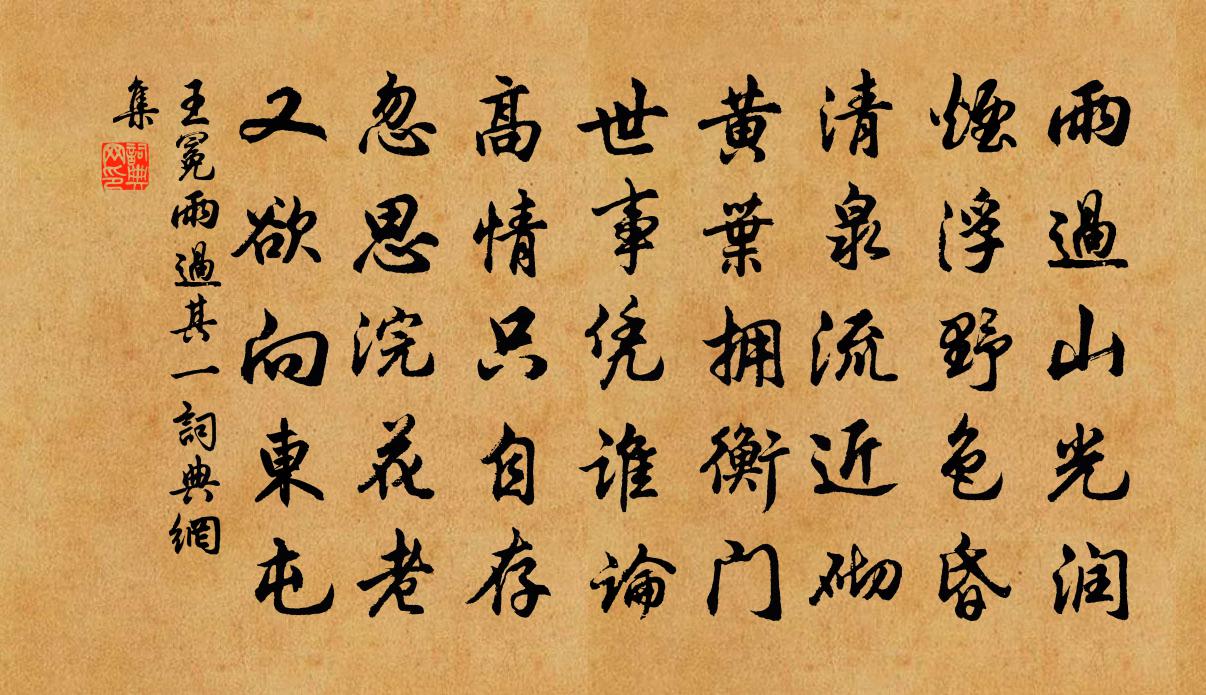 雨過山光润
煙浮野色昏
清泉流近砌
黄葉拥衡门
世事凭谁論
高情只自存
忽思浣花老
又欲向東屯
王冕雨過其一詞典網
集
詞典
网印